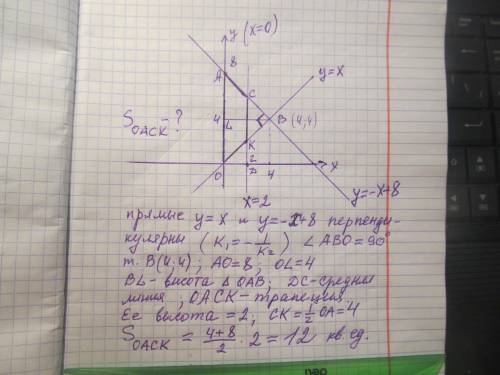 y (x=0)
8
A
y=x
C
S OACK - ?
4
L
B (4,4)
K
O
2
D
4
x
x=2
y=-x+8
прямые y=x и y=-x+8 перпенди-
кулярны (K₁=-1/K₂) ∠ABO=90°
т. B(4,4); AO=8; OL=4
BL-высота Δ OAB; DC-средняя
линия, OACK-трапеция.
Ее высота=2; CK=1/2 OA=4
S OACK = (4+8)/2 · 2 = 12 кв. ед.
neo